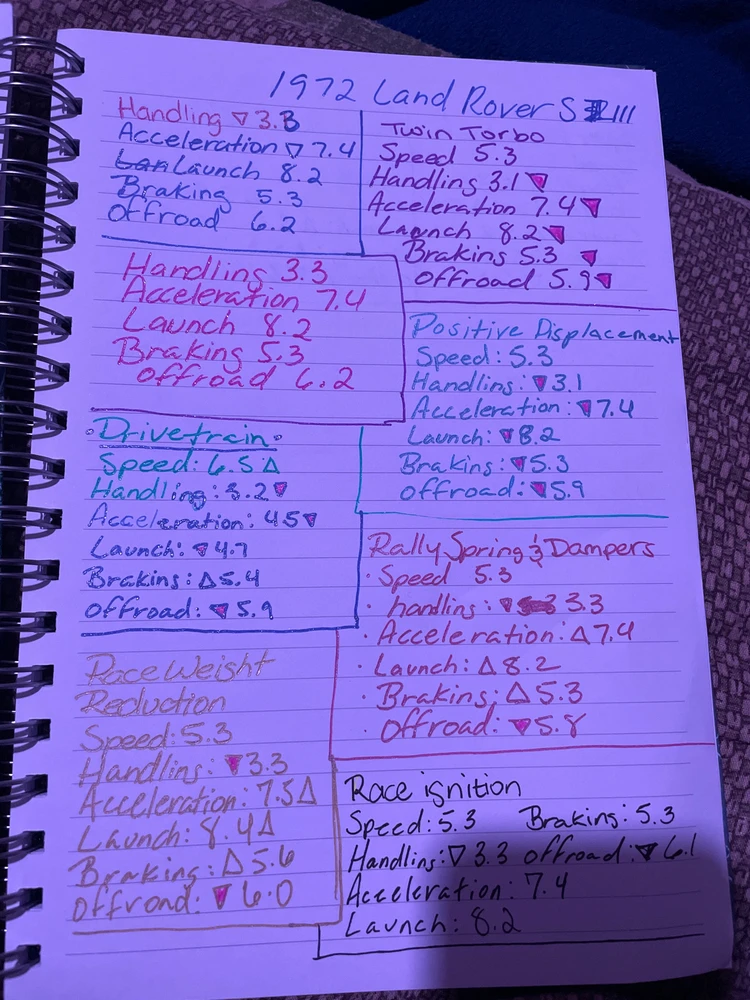 1972 Land Rover S III
Handling ▽ 3.3
Acceleration ▽ 7.4
Launch 8.2
Braking 5.3
Offroad 6.2
Handling 3.3
Acceleration 7.4
Launch 8.2
Braking 5.3
offroad 6.2
·Drivetrain·
Speed: 6.5 △
Handling: 3.2 ▼
Acceleration: 4.5 ▼
Launch: ▼ 4.7
Braking: △ 5.4
Offroad: ▼ 5.9
Race Weight
Reduction
Speed: 5.3
Handling: ▼ 3.3
Acceleration: 7.5 △
Launch: 8.4 △
Braking: △ 5.6
Offroad: ▼ 6.0
Twin Torbo
Speed 5.3
Handling 3.1 ▼
Acceleration 7.4 ▼
Launch 8.2 ▼
Braking 5.3 ▼
offroad 5.9 ▼
Positive Displacement
Speed: 5.3
Handling: ▼ 3.1
Acceleration: ▼ 7.4
Launch: ▼ 8.2
Braking: ▼ 5.3
offroad: ▼ 5.9
Rally Spring & Dampers
· Speed 5.3
· handling: ▼ 3.3
· Acceleration: △ 7.4
· Launch: △ 8.2
· Braking: △ 5.3
· Offroad: ▼ 5.8
Race ignition
Speed: 5.3 Braking: 5.3
Handling: ▽ 3.3 offroad: ▼ 6.1
Acceleration: 7.4
Launch: 8.2